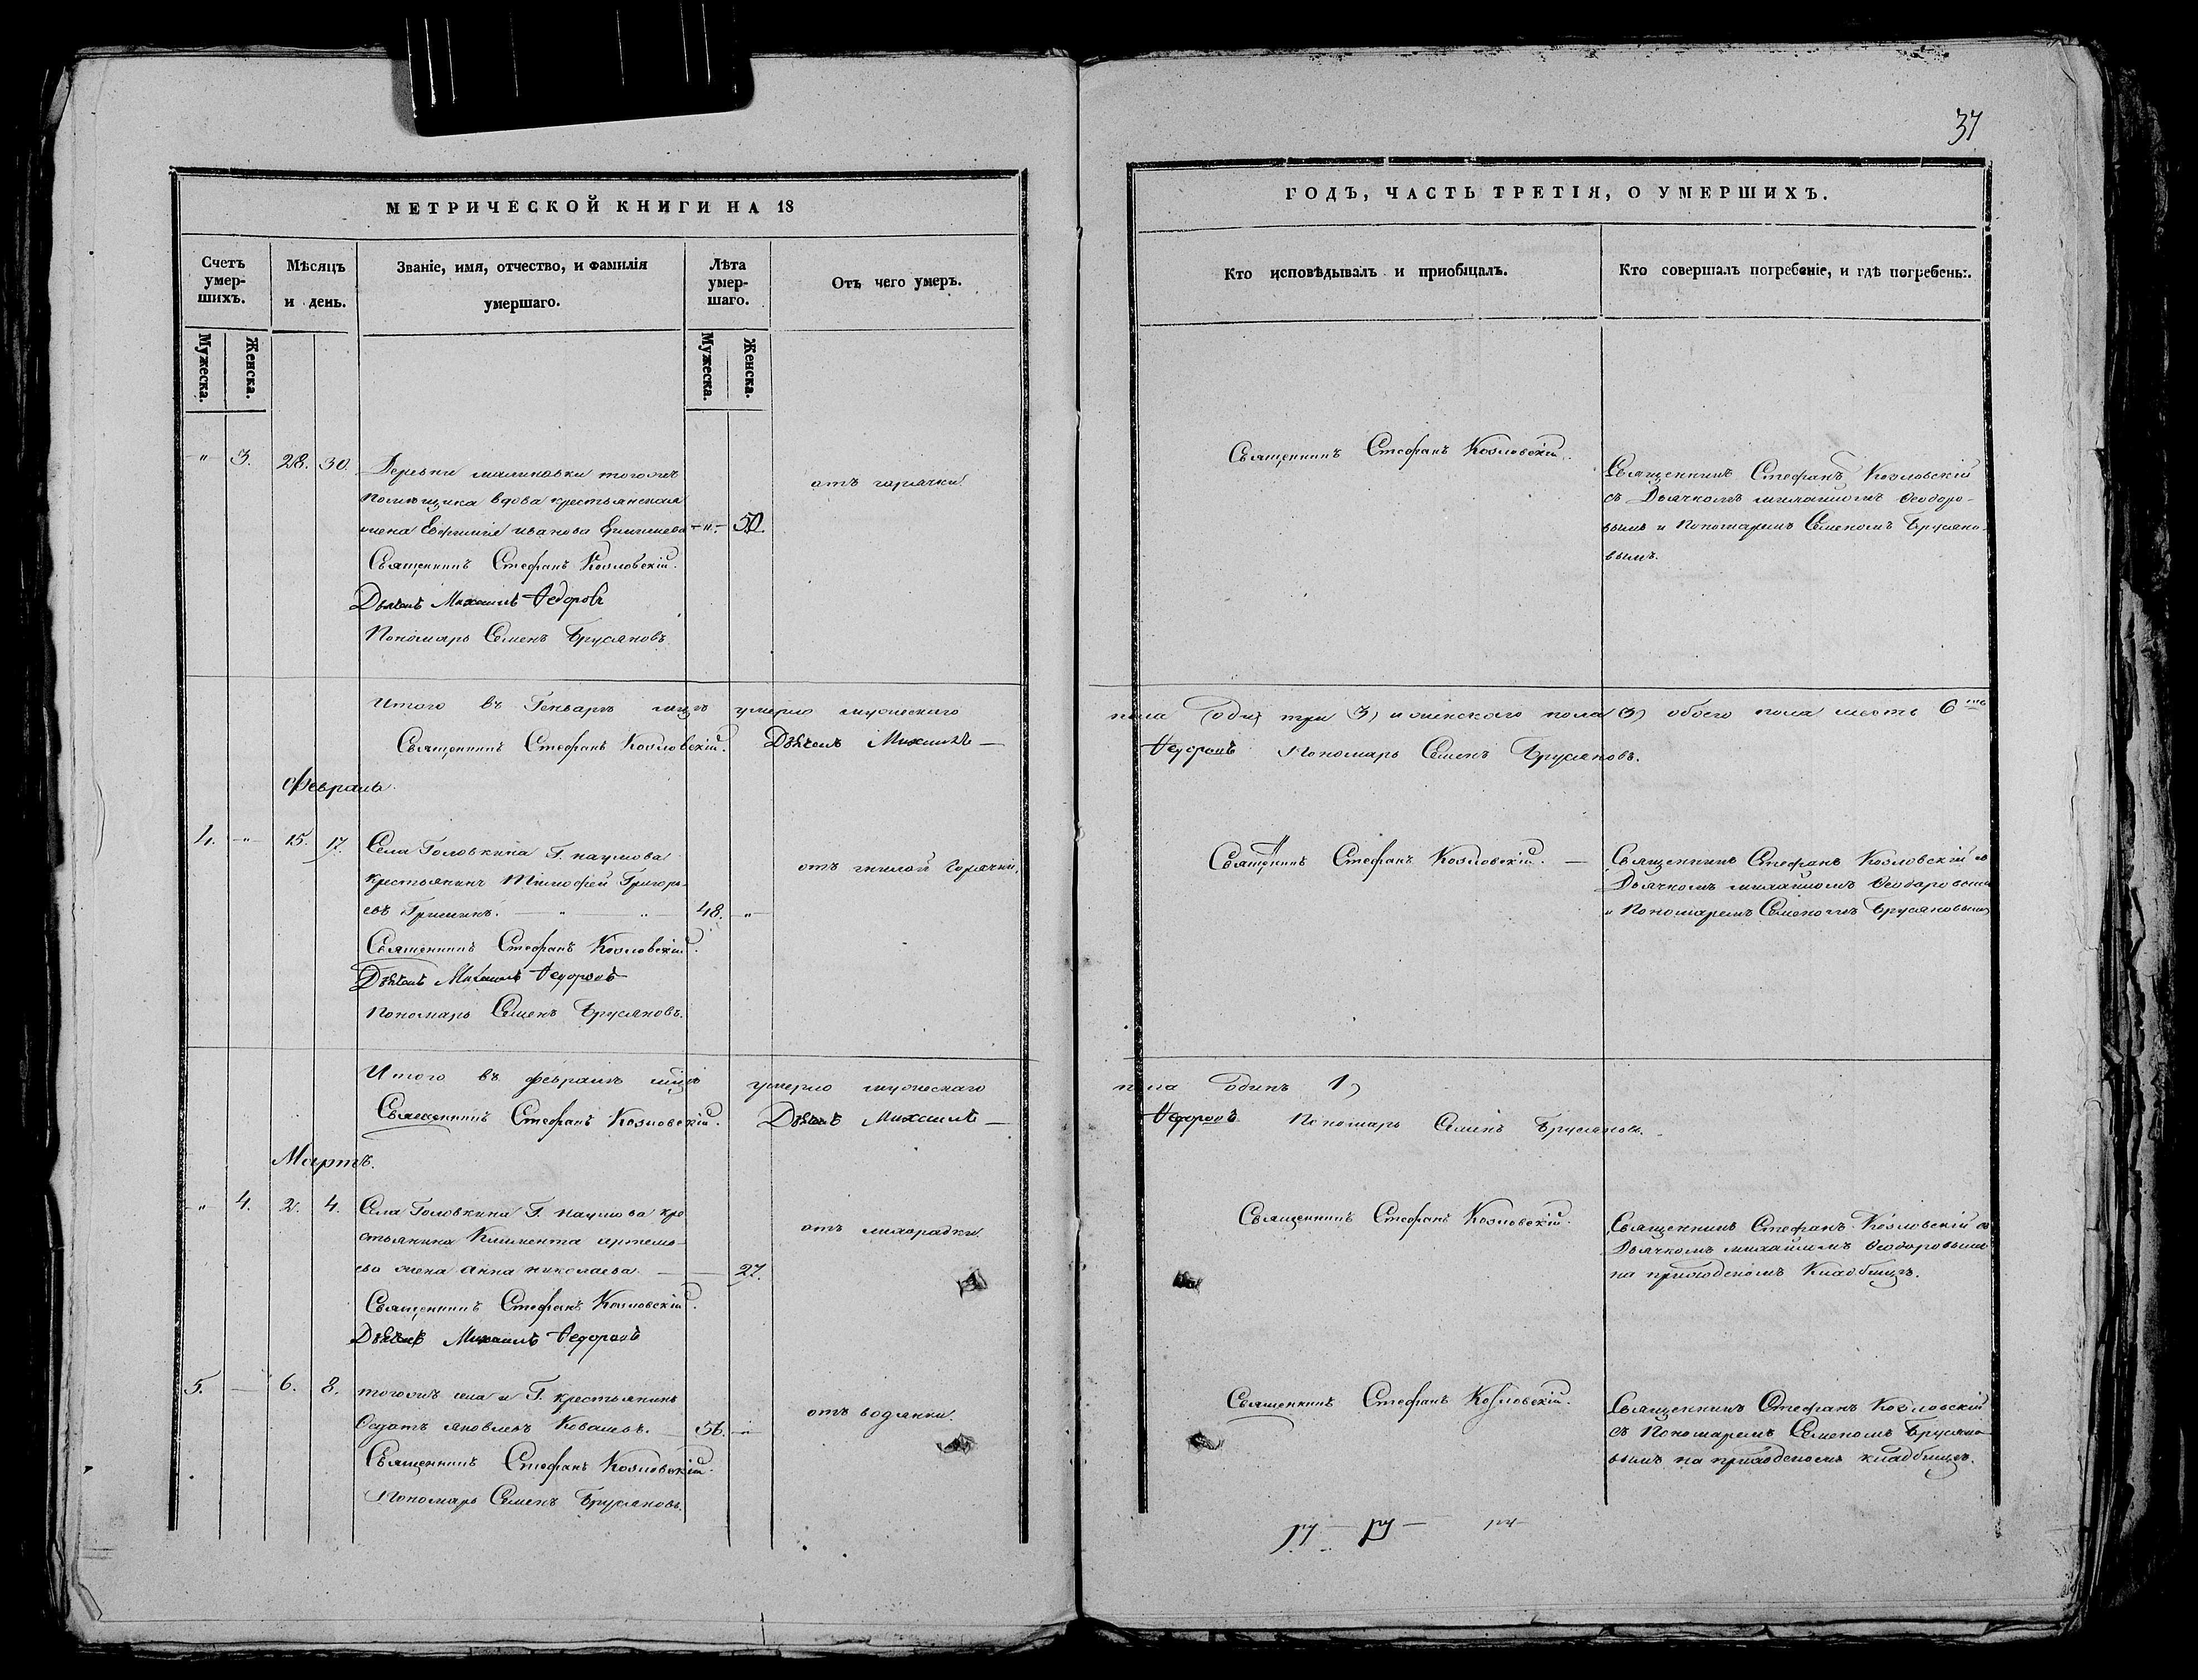 37
МЕТРИЧЕСКОЙ КНИГИ НА 18
Счетъ умер-шихъ.
Мѣсяцъ и день.
Званіе, имя, отчество, и фамилія умершаго.
Лѣта умер-шаго.
Отъ чего умеръ.
Мужеска.
Женска.
Мужеска.
Женска.
ГОДЪ, ЧАСТЬ ТРЕТІЯ, О УМЕРШИХЪ.
Кто исповѣдывалъ и пріобщалъ.
Кто совершалъ погребеніе, и гдѣ погребены.
" 3. 28. 30.
Деревни малиновки тогожъ
помѣщика вдова крестьянская
жена Евфимія иванова
-"- 50.
отъ горячки
Священникъ Стефанъ Козловскій.
Дьячекъ Михаилъ Федоровъ
Пономарь Семенъ Брусяновъ.
Священникъ Стефанъ Козловскій.
Священникъ Стефанъ Козловскій
съ Дьячкомъ михаиломъ Ѳеодоро-
вымъ и Пономаремъ Семеномъ Брусяно-
вымъ.
Итого въ Генварѣ мцѣ умерло мужескаго пола три 3) и женскаго пола (3) обоего пола шесть 6
Священникъ Стефанъ Козловскій. Дьячекъ Михаилъ — Федоровъ Пономарь Семенъ Брусяновъ.
Февраль.
4. -"- 15. 17.
Села Головкина Г. наумова
крестьянинъ Тимофей Григорь-
евъ Гришинъ.
48. "
отъ гнилой горячки.
Священникъ Стефанъ Козловскій.
Дьячекъ Михаилъ Федоровъ
Пономарь Семенъ Брусяновъ.
Священникъ Стефанъ Козловскій. —
Священникъ Стефанъ Козловскій съ
Дьячкомъ михаиломъ Ѳеодоровымъ
и Пономаремъ Семеномъ Брусяновымъ
Итого въ февралѣ мцѣ умерло мужескаго пола Одинъ 1)
Священникъ Стефанъ Козловскій. Дьячекъ Михаилъ — Федоровъ Пономарь Семенъ Брусяновъ.
Мартъ.
-"- 4. 2. 4.
Села Головкина Г. наумова кре
стьянина Климента артемь-
ева жена Анна николаева. —
27.
отъ лихорадки
Священникъ Стефанъ Козловскій.
Дьячекъ Михаилъ Федоровъ
Священникъ Стефанъ Козловскій.
Священникъ Стефанъ Козловскій съ
Дьячкомъ михаиломъ Ѳеодоровымъ
на приходскомъ Кладбищѣ.
5. — 6. 8.
тогожъ села и Г. крестьянинъ
яковлевъ Ковалевъ.
56. -"-
отъ водянки.
Священникъ Стефанъ Козловскій.
Пономарь Семенъ Брусяновъ.
Священникъ Стефанъ Козловскій.
Священникъ Стефанъ Козловскій
съ Пономаремъ Семеномъ Брусяно-
вымъ на приходскомъ кладбищѣ.